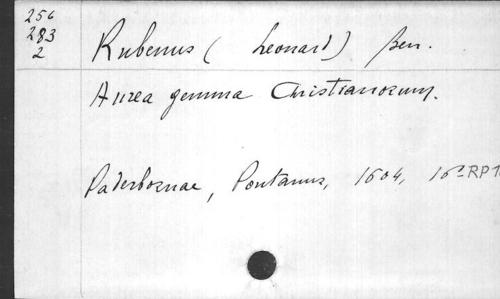 256
283
2
Rubenus ( Leonard ) Ben.
Aurea gemma Christianorum.
Paderbornae, Pontanus, 1604, 16º RP